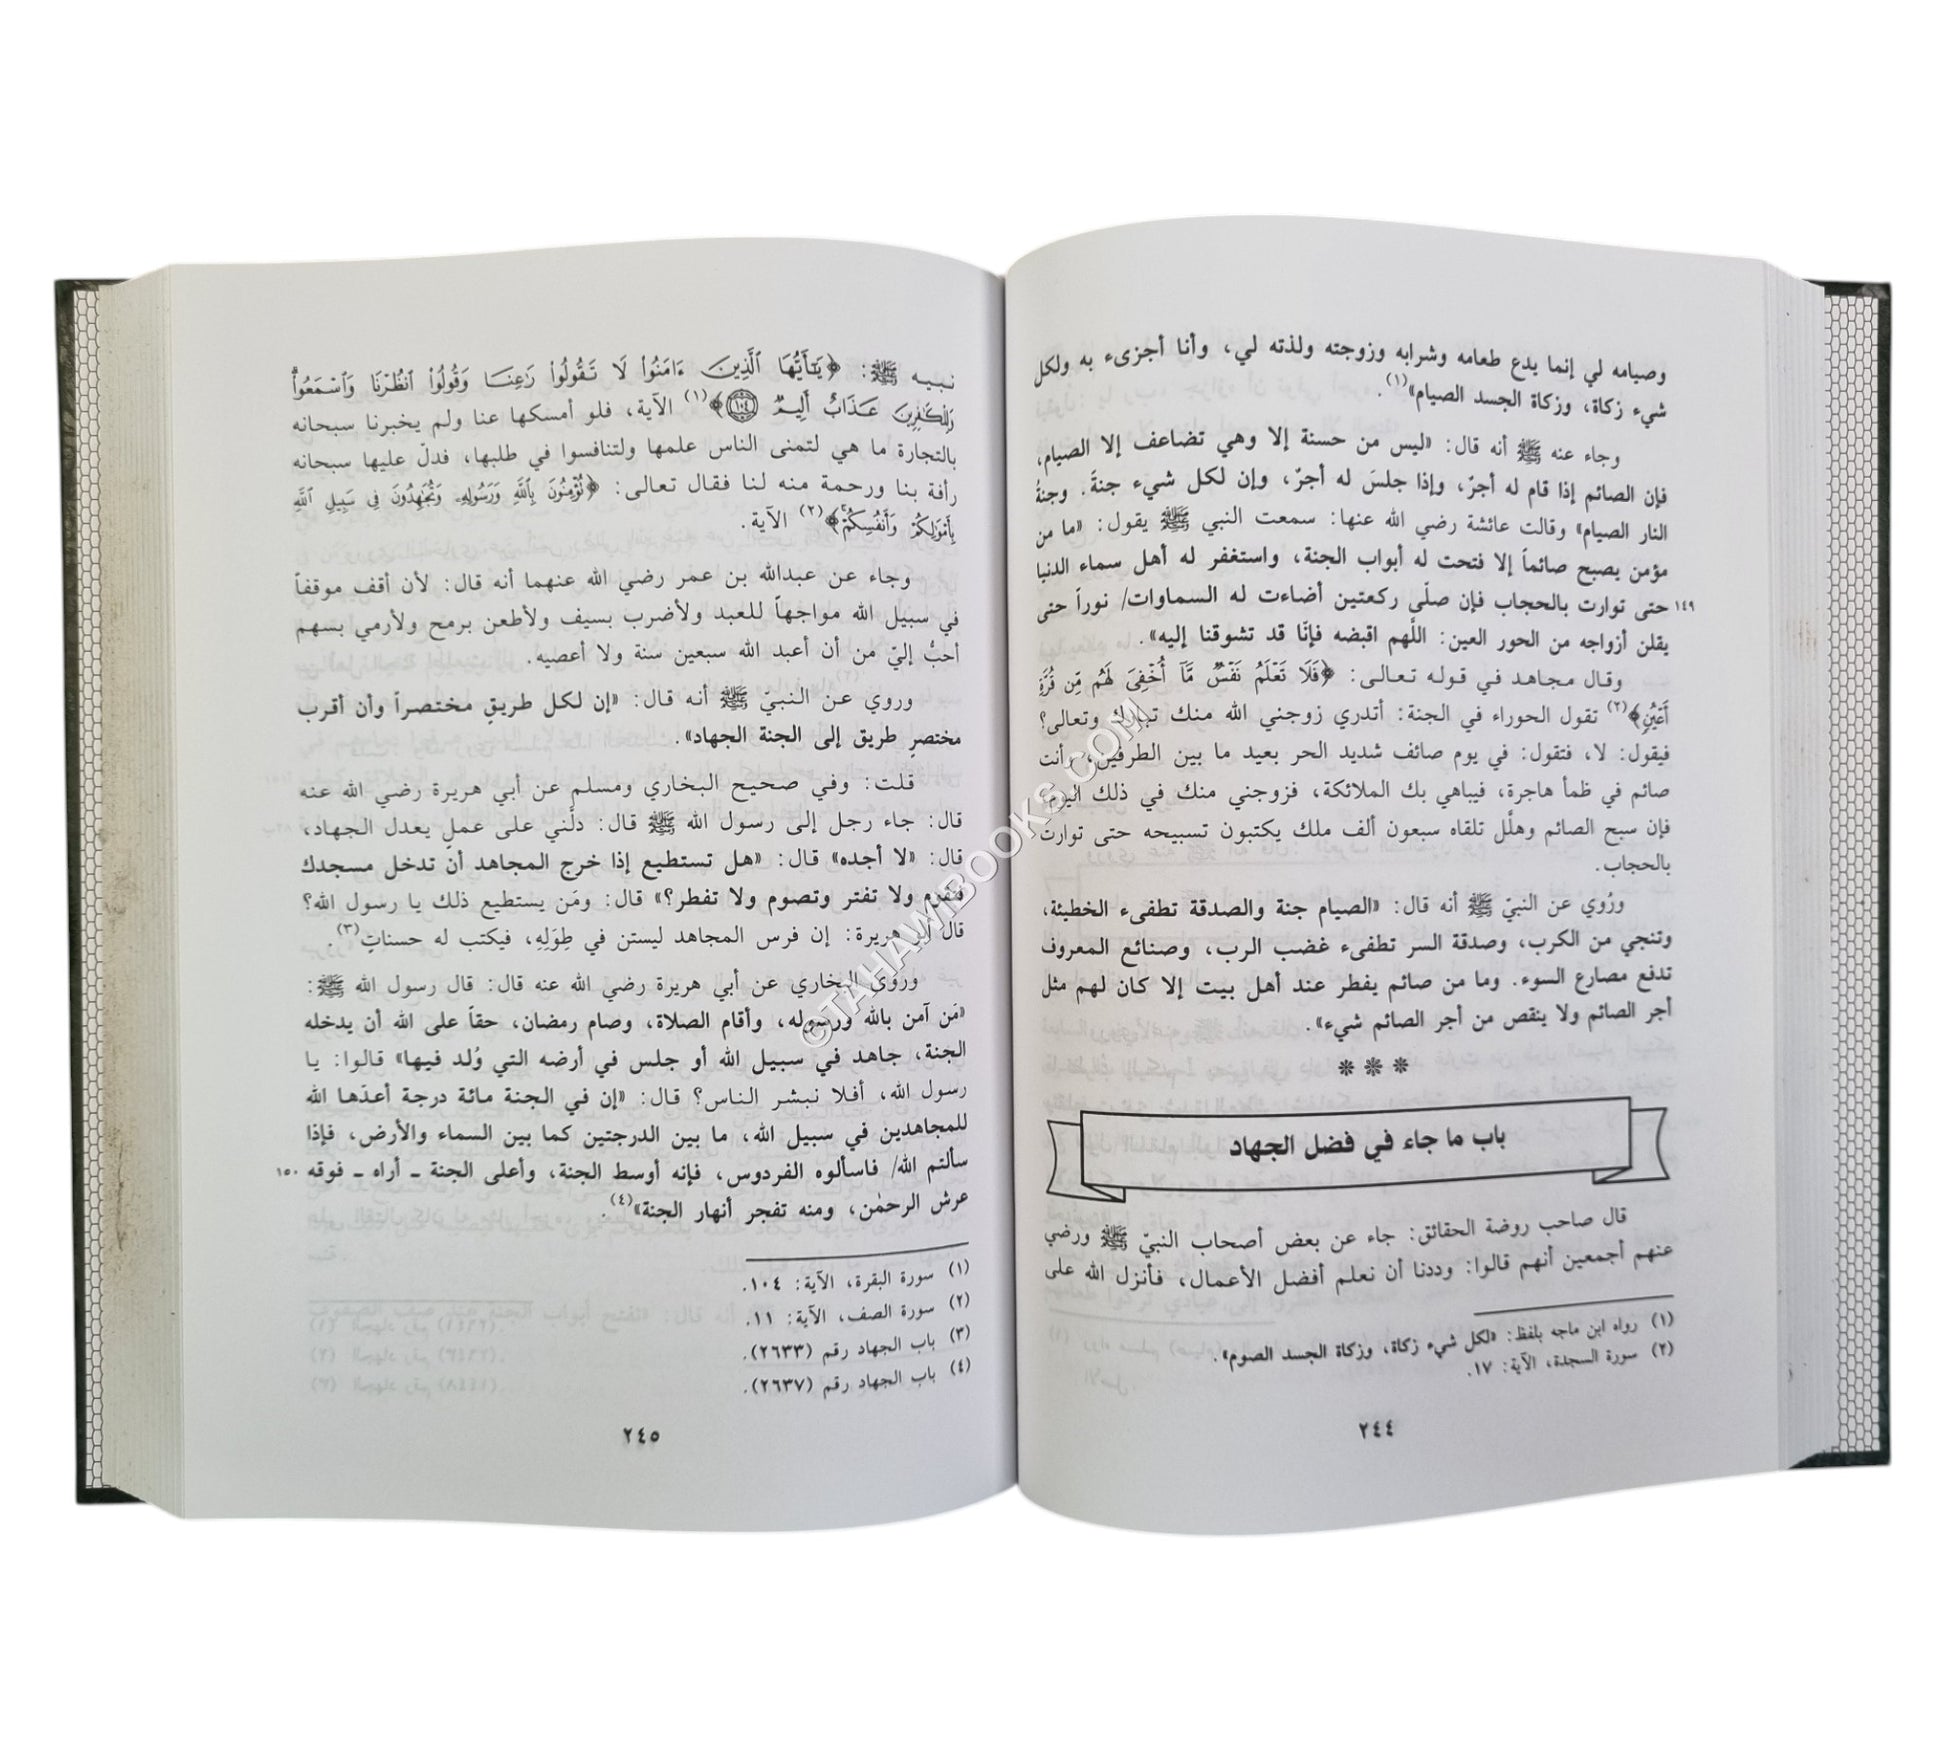 وصيامه لي إنما يدع طعامه وشرابه وزوجته ولذته لي، وأنا أجزىء به ولكل
شيء زكاة، وزكاة الجسد الصيام»(١).
وجاء عنه ﷺ أنه قال: «ليس من حسنة إلا وهي تضاعف إلا الصيام،
فإن الصائم إذا قام له أجرٌ، وإذا جلسَ له أجرٌ، وإن لكل شيء جنةً. وجنةُ
النار الصيام» وقالت عائشة رضي الله عنها: سمعت النبي ﷺ يقول: «ما من
مؤمن يصبح صائماً إلا فتحت له أبواب الجنة، واستغفر له أهل سماء الدنيا
حتى توارت بالحجاب فإن صلّى ركعتين أضاءت له السماوات/ نوراً حتى ١٤٩
يقلن أزواجه من الحور العين: اللَّهم اقبضه فإنّا قد تشوقنا إليه».
وقال مجاهد في قوله تعالى: ﴿فَلَا تَعْلَمُ نَفْسٌ مَّآ أُخْفِىَ لَهُم مِّن قُرَّةِ
أَعْيُنٍ﴾(٢) تقول الحوراء في الجنة: أتدري زوجني الله منك تبارك وتعالى؟
فيقول: لا، فتقول: في يوم صائف شديد الحر بعيد ما بين الطرفين، وأنت
صائم في ظمأ هاجرة، فيباهي بك الملائكة، فزوجني منك في ذلك اليوم،
فإن سبح الصائم وهلَّل تلقاه سبعون ألف ملك يكتبون تسبيحه حتى توارت
بالحجاب.
ورُوي عن النبيّ ﷺ أنه قال: «الصيام جنة والصدقة تطفىء الخطيئة،
وتنجي من الكرب، وصدقة السر تطفىء غضب الرب، وصنائع المعروف
تدفع مصارع السوء. وما من صائم يفطر عند أهل بيت إلا كان لهم مثل
أجر الصائم ولا ينقص من أجر الصائم شيء».
❋ ❋ ❋
باب ما جاء في فضل الجهاد
قال صاحب روضة الحقائق: جاء عن بعض أصحاب النبيّ ﷺ ورضي
عنهم أجمعين أنهم قالوا: وددنا أن نعلم أفضل الأعمال، فأنزل الله على
(١) رواه ابن ماجه بلفظ: «لكل شيء زكاة، وزكاة الجسد الصوم».
(٢) سورة السجدة، الآية: ١٧.
٢٤٤
نبيه ﷺ: ﴿يَٰٓأَيُّهَا ٱلَّذِينَ ءَامَنُوا۟ لَا تَقُولُوا۟ رَٰعِنَا وَقُولُوا۟ ٱنظُرْنَا وَٱسْمَعُوا۟ۗ
وَلِلْكَٰفِرِينَ عَذَابٌ أَلِيمٌ ١٠٤﴾(١) الآية، فلو أمسكها عنا ولم يخبرنا سبحانه
بالتجارة ما هي لتمنى الناس علمها ولتنافسوا في طلبها، فدلّ عليها سبحانه
رأفة بنا ورحمة منه لنا فقال تعالى: ﴿تُؤْمِنُونَ بِٱللَّهِ وَرَسُولِهِۦ وَتُجَٰهِدُونَ فِى سَبِيلِ ٱللَّهِ
بِأَمْوَٰلِكُمْ وَأَنفُسِكُمْۚ﴾(٢) الآية.
وجاء عن عبدالله بن عمر رضي الله عنهما أنه قال: لأن أقف موقفاً
في سبيل الله مواجهاً للعبد ولأضرب بسيف ولأطعن برمح ولأرمي بسهم
أحبُّ إليّ من أن أعبد الله سبعين سنة ولا أعصيه.
وروي عن النبيّ ﷺ أنه قال: «إن لكل طريقٍ مختصراً وأن أقرب
مختصرِ طريق إلى الجنة الجهاد».
قلت: وفي صحيح البخاري ومسلم عن أبي هريرة رضي الله عنه
قال: جاء رجل إلى رسول الله ﷺ قال: دلَّني على عملٍ يعدل الجهاد،
قال: «لا أجده» قال: «هل تستطيع إذا خرج المجاهد أن تدخل مسجدك
فتقوم ولا تفتر وتصوم ولا تفطر؟» قال: ومَن يستطيع ذلك يا رسول الله؟
قال أبو هريرة: إن فرس المجاهد ليستن في طِوَلِهِ، فيكتب له حسناتٍ(٣).
وروى البخاري عن أبي هريرة رضي الله عنه قال: قال رسول الله ﷺ:
«مَن آمن بالله ورسوله، وأقام الصلاة، وصام رمضان، حقاً على الله أن يدخله
الجنة، جاهد في سبيل الله أو جلس في أرضه التي وُلد فيها» قالوا: يا
رسول الله، أفلا نبشر الناس؟ قال: «إن في الجنة مائة درجة أعدّها الله
للمجاهدين في سبيل الله، ما بين الدرجتين كما بين السماء والأرض، فإذا
سألتم الله/ فاسألوه الفردوس، فإنه أوسط الجنة، وأعلى الجنة ـ أراه ـ فوقه ١٥٠
عرش الرحمٰن، ومنه تفجر أنهار الجنة»(٤).
(١) سورة البقرة، الآية: ١٠٤.
(٢) سورة الصف، الآية: ١١.
(٣) باب الجهاد رقم (٢٦٣٣).
(٤) باب الجهاد رقم (٢٦٣٧).
٢٤٥
©TAHAWIBOOKS.COM